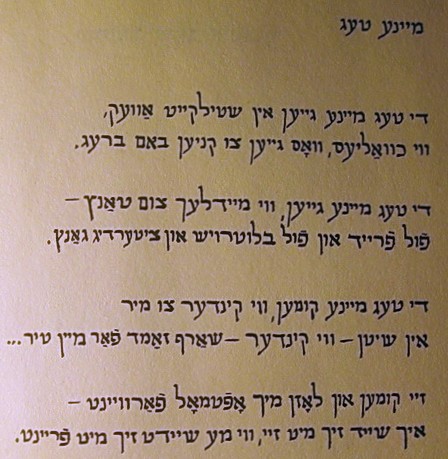 מײַנע טעג
די טעג מײַנע גייען אין שטילקייט אַוועק,
ווי כוואַליעס, וואָס גייען צו קניִען באַם ברעג.
די טעג מײַנע גייען, ווי מיידלעך צום טאַנץ –
פֿול פֿרייד און פֿול בלוטרויש און ציטערדיג גאַנץ.
די טעג מײַנע קומען, ווי קינדער צו מיר
אין שיטן – ווי קינדער – שאַרף זאַמד פֿאַר מײַן טיר...
זיי קומען און לאָזן מיך אָפֿטמאָל פֿאַרוויינט –
איך שייד זיך מיט זיי, ווי מע שיידט זיך מיט פֿרײַנט.